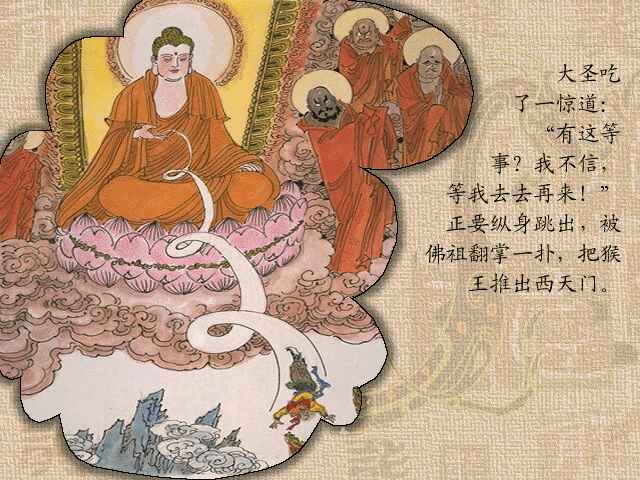 大圣吃
了一惊道：
“有这等
事？我不信，
等我去去再来！”
正要纵身跳出，被
佛祖翻掌一扑，把猴
王推出西天门。